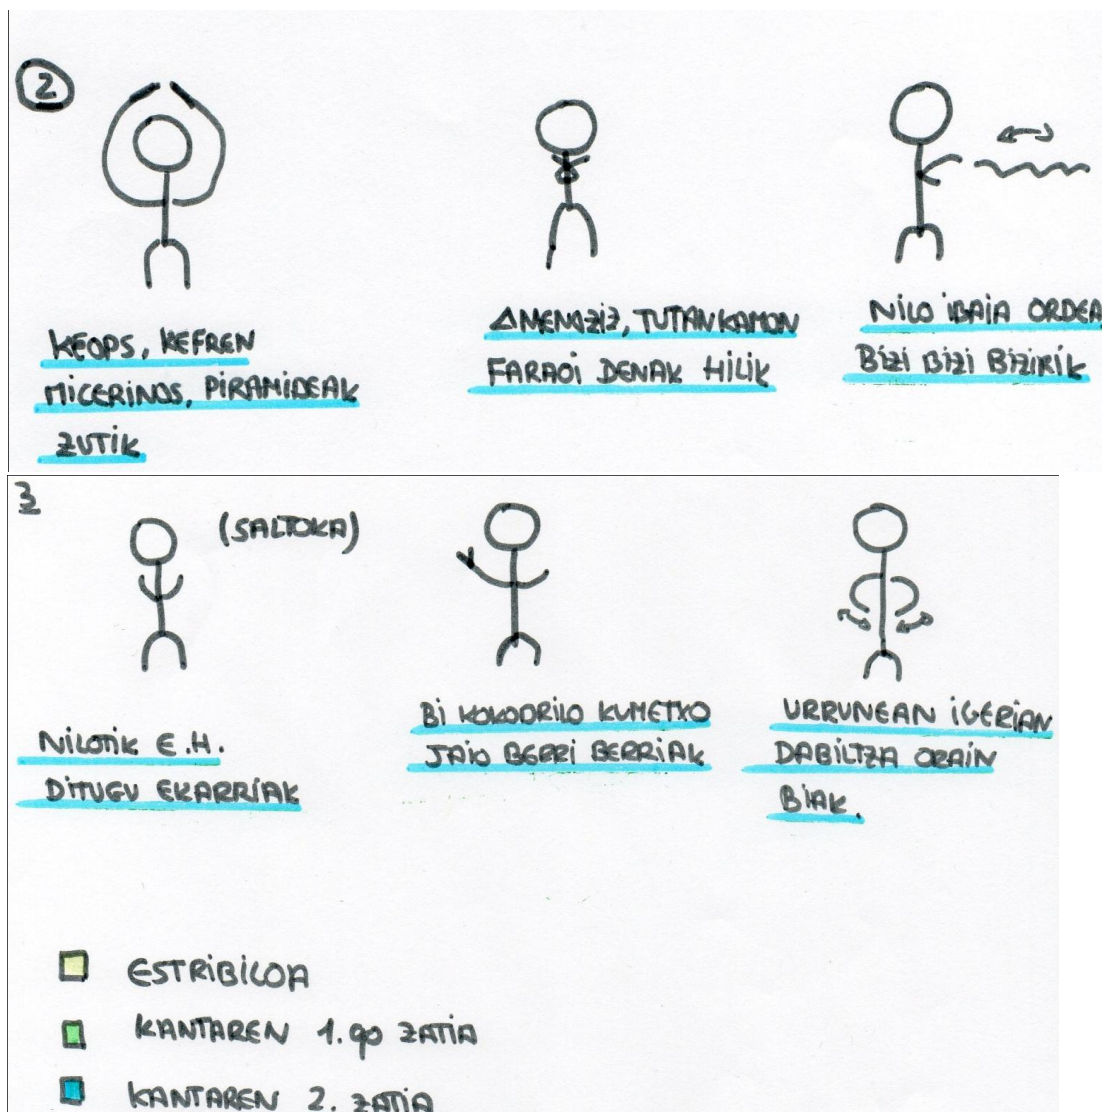 2
KEOPS, KEFREN
MICERINOS, PIRAMIDEAK
ZUTIK
AMENOZIZ, TUTANKAMON
FARAOI DENAK HILIK
NILO IBAIA ORDEA
BIZI BIZI BIZIRIK
3
(SALTOKA)
NILOTIK E.H.
DITUGU EKARRIAK
BI KOKODRILO KUMETXO
JAIO BERRI BERRIAK
URRUNEAN IGERIAN
DABILTZA ORAIN
BIAK.
ESTRIBILOA
KANTAREN 1.go ZATIA
KANTAREN 2. ZATIA